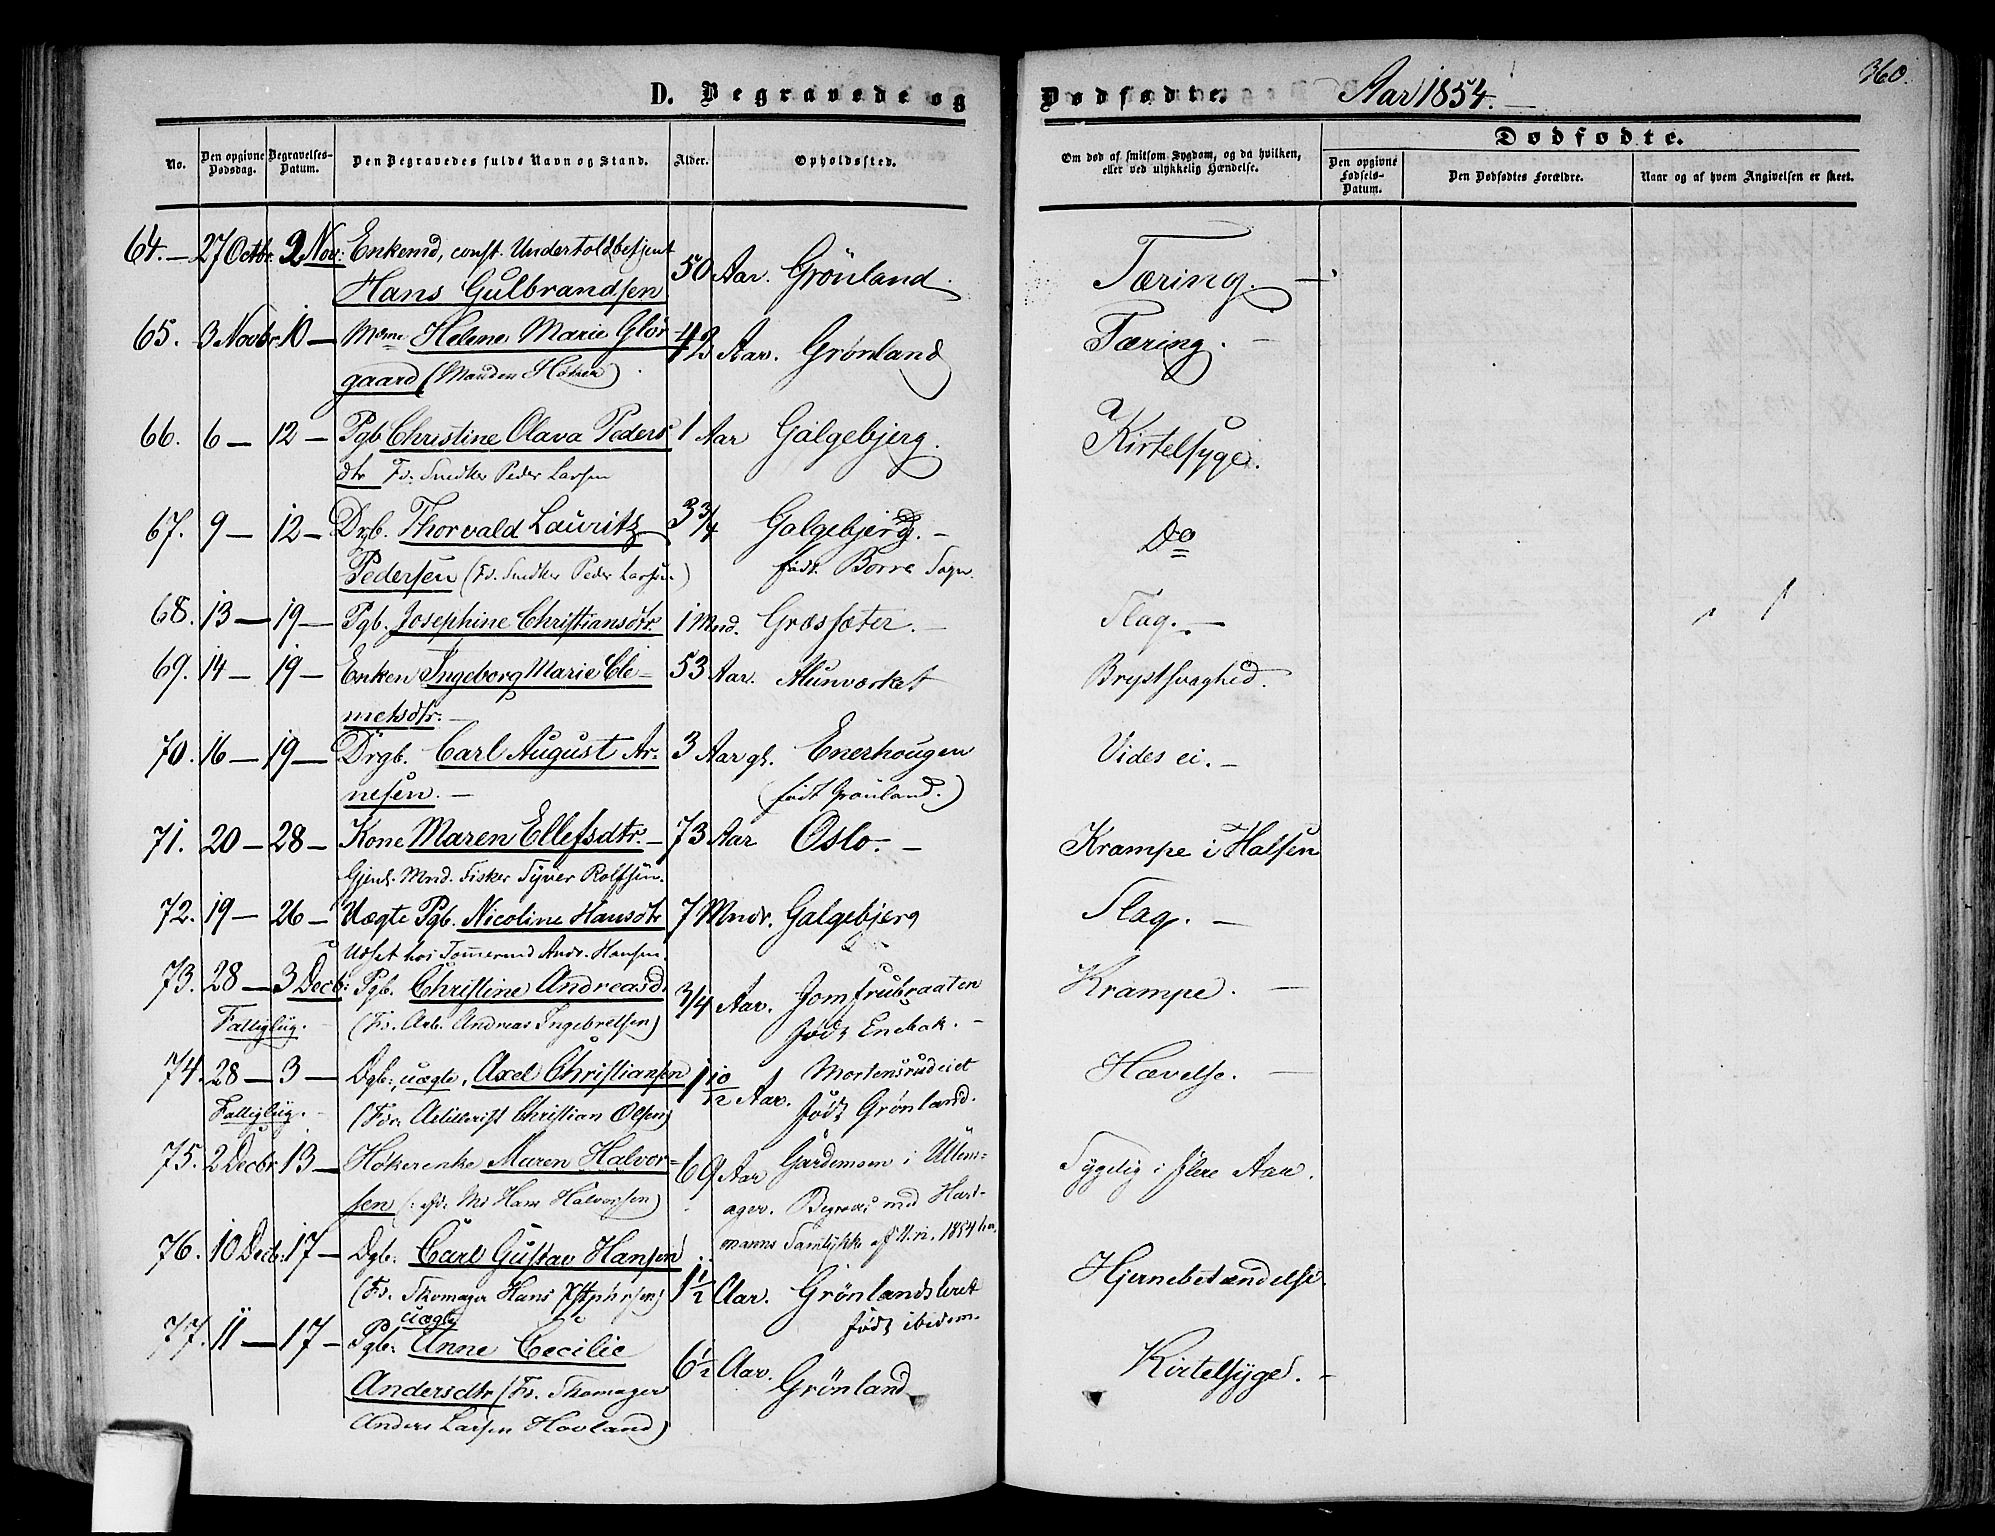 360.
D. Begravede og Dødfødte. Aar 1854.—
Dødfødte.
No.
Den opgivne Dødsdag.
Begravelses-Datum.
Den Begravedes fulde Navn og Stand.
Alder.
Opholdssted.
Om død af smitsom Sygdom, og da hvilken,
eller ved ulykkelig Hændelse.
Den opgivne Fødsels-Datum.
Den Dødfødtes Forældre.
Naar og af hvem Angivelsen er skeet.
64.— 27 Octbr. 2 Nov: Enkemd, const. Undertoldbetjent
Hans Gulbrandsen 50 Aar. Grönland. Tæring.—
65. 3 Novbr. 10— Mdme Helene Marie Glör-
gaard (Manden Høker) 42/3 Aar. Grønland Tæring.—
66. 6— 12— Pgb Christine Olava Peders
dtr Fr. Snedker Peder Larsen 1 Aar Galgebjerg. Kirtelsyge.
67. 9— 12— Drgb. Thorvald Lauritz
Pedersen (Fr. Snedker Peder Larsen.) 3 3/4 Galgebjerg.—
født Borre Sogn. Do
68. 13— 19— Pgb. Josephine Christiansdtr. 1 Mnd. Græssæter.— Slag.—
69. 14— 19— Enken Ingeborg Marie Cle-
metsdtr.— 53 Aar. Alunværket Brystsvaghed.
70. 16— 19— Drgb. Carl August Ar-
nesen.— 3 Aar gl. Enerhougen
(født Grønland.) Vides ei.—
71. 20— 28— Kone Maren Ellefsdtr.— 73 Aar Oslo.— Krampe i Halsen
Gjenl. Mnd. Fisker Syver Rolfsen.
72. 19— 26— Uægte Pgb. Nicoline Hansdtr 7 Mndr. Galgebjerg Slag.—
Udsat hos Tømmermd Andr. Hansen.
73. 28— 3 Decb: Pgb. Christine Andreasd. 3/4 Aar. Jomfrubraaten Krampe.—
Fattiglig.— (Fr. Arb. Andreas Ingebretsen) født Enebak.—
74. 28— 3— Dgb: uægte, Axel Christiansen 1 10/12 Aar. Mortensrudeiet Hævelse.—
Fattiglig.— (Fdr: Artillerist Christian Olsen) født Grønland.
75. 2 Decbr 13— Høkerenke Maren Halvor-
sen (: Hans Halvorsen) 69 Aar Gardemoen i Ullens-
ager. Begravet med Hart-
manns Samtykke 1854 Sygelig i flere Aar.
76. 10 Decb. 17— Dgb: Carl Gustav Hansen
(Fr. Skomager Hans) 1 1/2 Aar. Grönlandsleret
født ibidem.— Hjernebetændelse.
77. 11— 17— Pgb: uægte Anne Cecilie
Andersdtr (Fr. Skomager
Anders Larsen Hovland) 6 1/2 Aar. Grönland Kirtelsyge.—